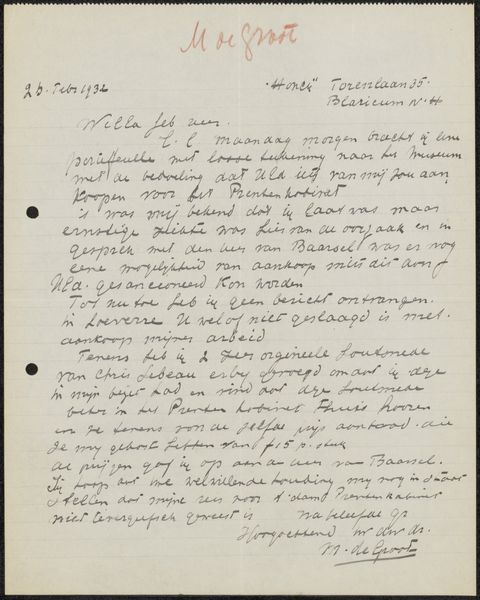 M de Groot
26 Febr 1932
"Honck" Torenlaan 35.
Blaricum N.H
maandag morgen bracht ij
portefeuille met losse teekening naar het Museum
met de bedoeling dat van mij zou aan
koopen voor het Prentenkabinet
is was mij bekend dat ij laat was maar
ernstige ziekte was van de oorzaak en in
gesprek met den van Baarsel was er nog
eene mogelijkheid van aankoop mits dit door
UEd. gesanctioneerd kon worden
Tot nu toe heb ij geen bericht ontvangen.
in hoeverre U wel of niet geslaagd is met
aankoop mijner arbeid
Tevens heb ij 2 orgineele houtsnede
van Chris Lebeau erby gevoegd omdat ij deze
in mijn bezit had en vind dat deze houtsnede
beter in het Prenten kabinet thuis hooren
en ze tevens voor de zelfde prijs aanbood die
ze my gekost hebben van f 15 p. stuk
de prijzen gaf ij op aan de van Baarsel.
Ij hoop dat uwe welwillende houding my nog in staat
stellen dat mijne reis naar A'dam Prentenkabinet
niet tevergeefsch geweest is
Hoogachtend uw dw dr.
M. de Groot